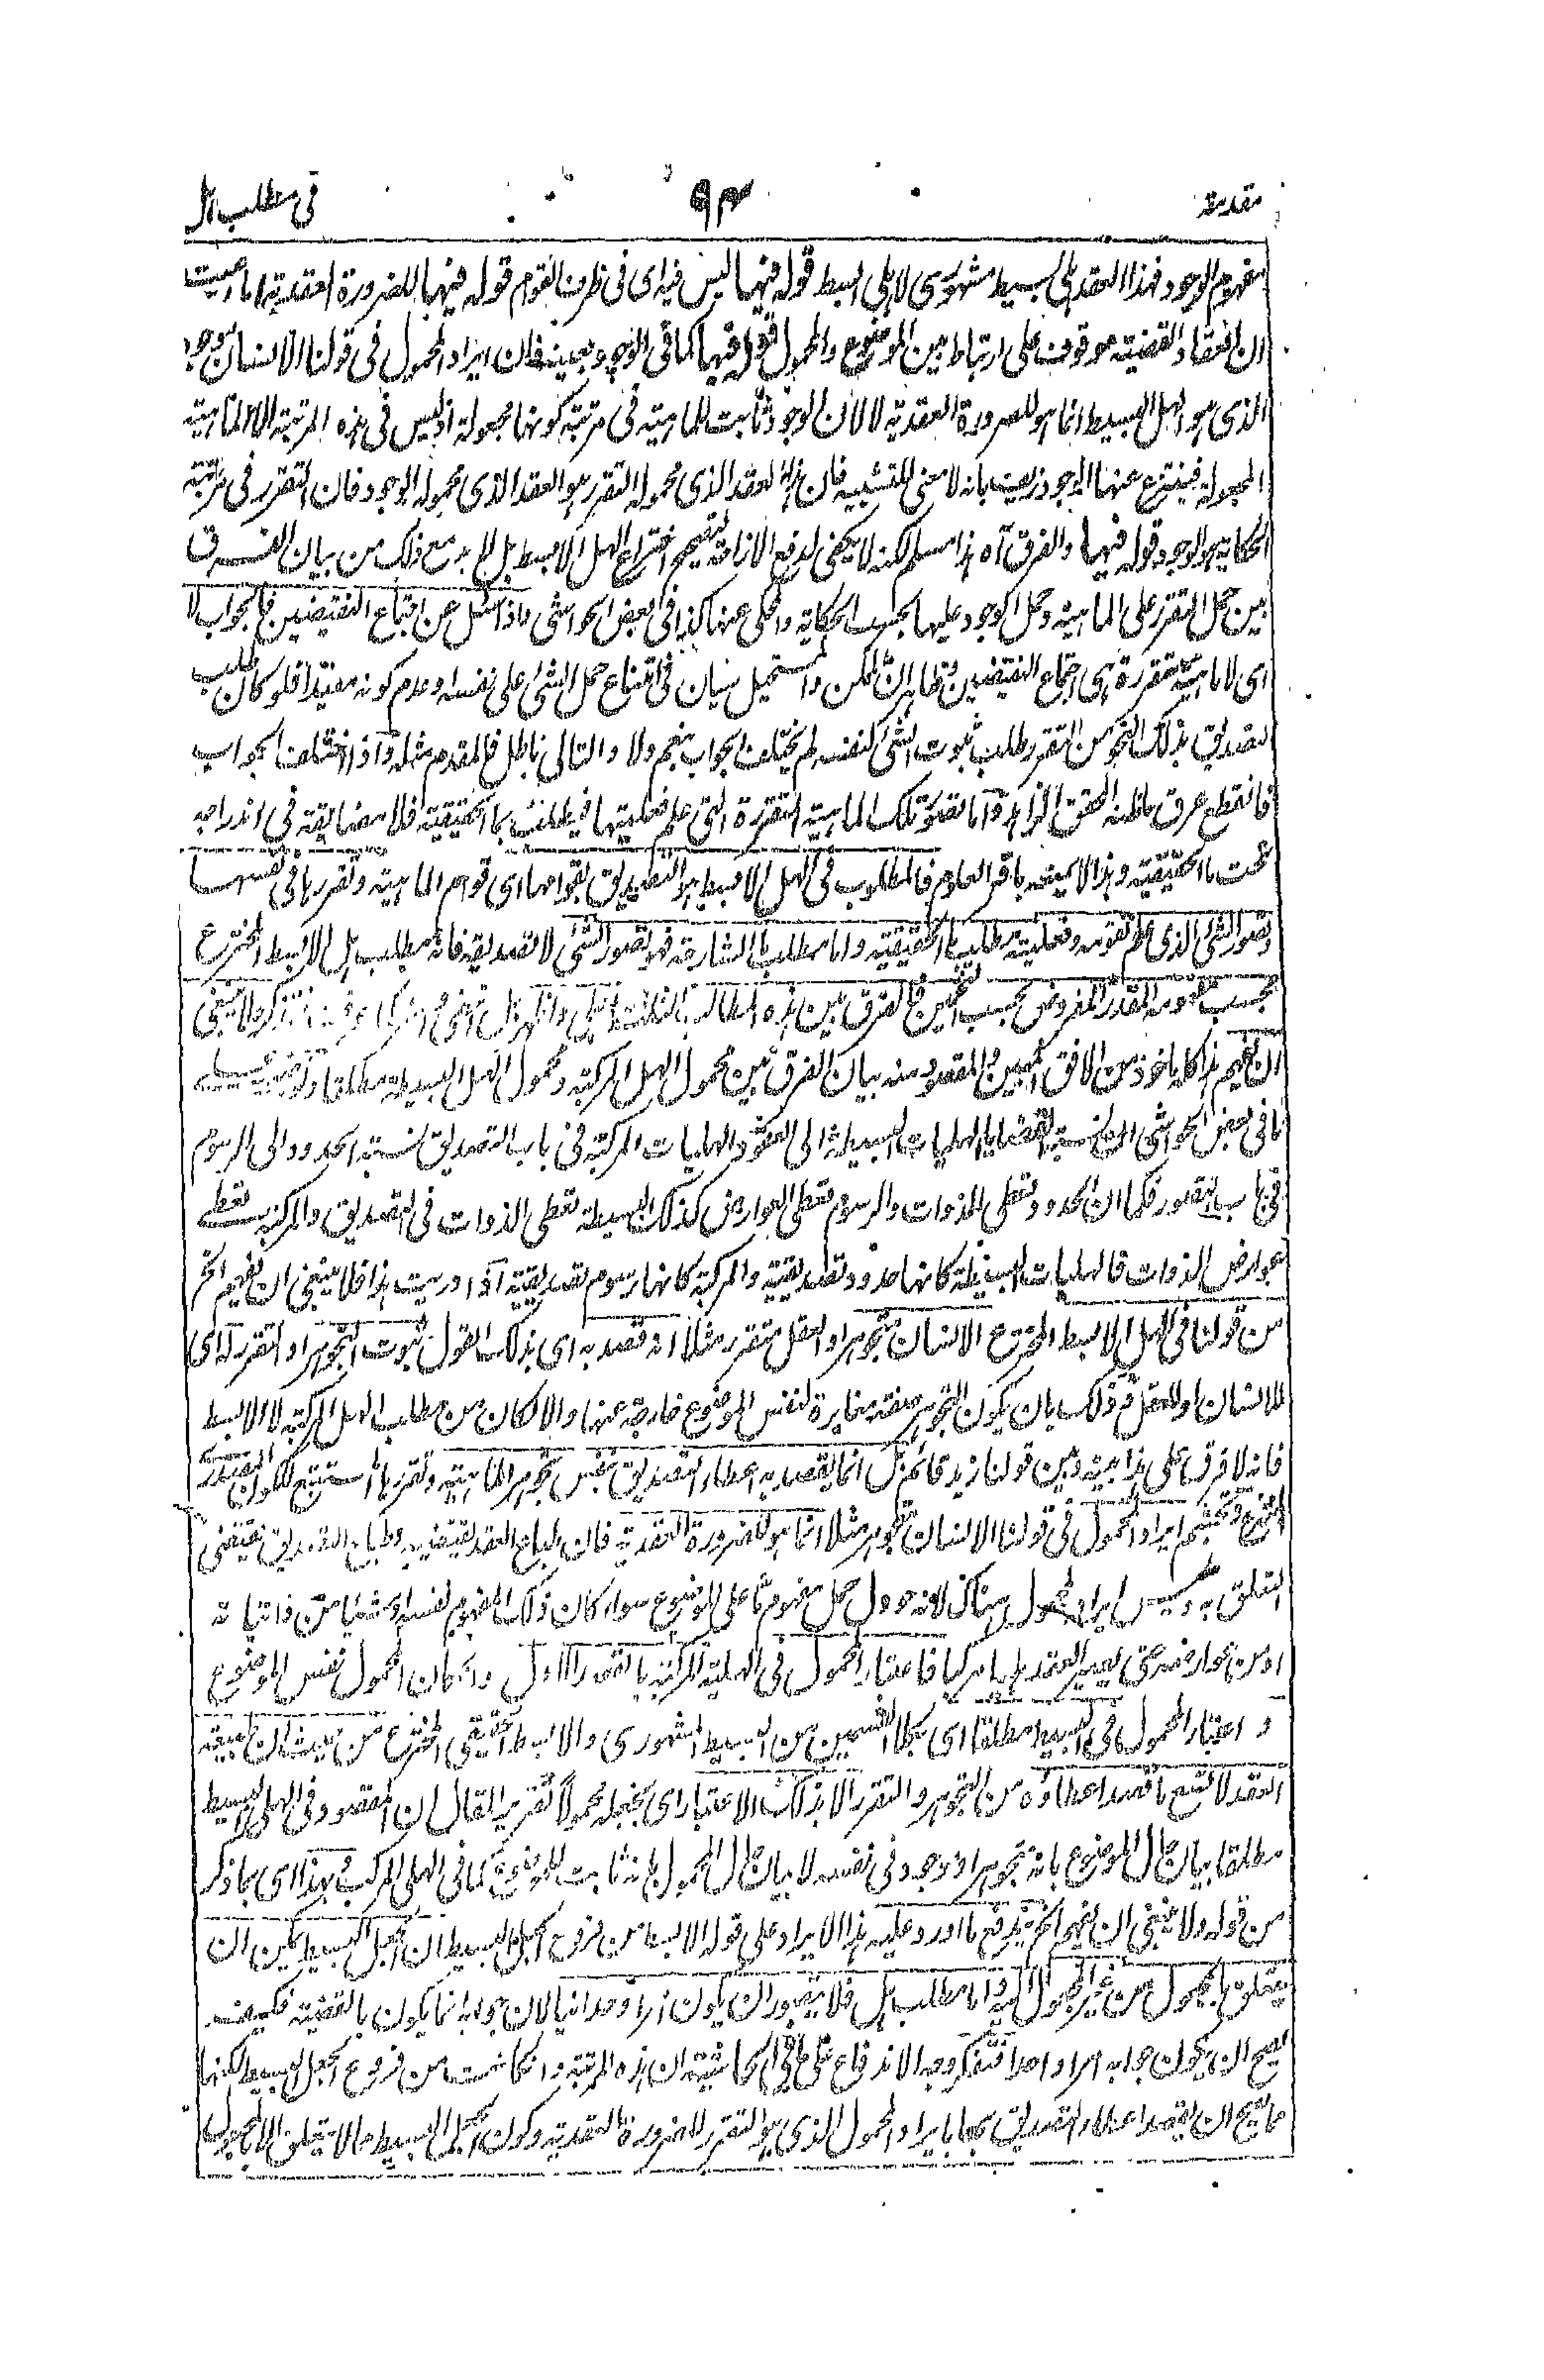 مقدمة ٩٣ فى مطلب هل
مفهوم الوجود فهذا العقد هلى بسيط مشهورى لا هلى ابسط قوله فيها ليس فيه اى فى ظرف القوم قوله فيها للضرورة العقدية اما دريت
ان انعقاد القضية موقوف على ارتباط بين الموضوع والمحمول قوله فيها كما فى الوجود بعينه فان ايراد المحمول فى قولنا الانسان موجود
الذى هو الهل البسيط انما هو للضرورة العقدية لا لان الوجود ثابت للماهية فى مرتبة كونها مجعولة اذ ليس فى هذه المرتبة الا الماهية
المجعولة فينتزع عنها الوجود زيف بانه لا معنى للتشبيه فان هذا العقد الذى محموله التقرر هو العقد الذى محموله الوجود فان التقرر فى مرتبة
الحكاية هو الوجود قوله فيها والفرق آه هذا مسلم لكنه لا يكفى لدفع الازاحة لتصحيح اختراع الهل الابسط بل لابد مع ذلك من بيان الفرق
بين حمل التقرر على الماهية وحمل الوجود عليها بحسب الحكاية والمحكى عنها كذا فى بعض الحواشى واذا سئل عن اجتماع النقيضين فالجواب لا
اى لا ماهية متقررة هى اجتماع النقيضين وظاهر ان الممكن والمستحيل سيان فى امتناع حمل الشئ على نفسه وعدم كونه مفيدا فلو كان طلب
التصديق بذلك النحو من التقرر طلب ثبوت الشئ لنفسه لم يختلف الجواب بنعم ولا والتالى باطل فالمقدم مثله واذا اختلف الجواب
فانقطع عرق ما ظنه المحقق الزاهد واما تصور تلك الماهية المتقررة التى علم فعليتها فيطلب بما الحقيقية فلا مضايقة فى اندراجه
تحت ما الحقيقية وهذا لا يمنعه باقر العلوم فالمطلوب فى الهل الابسط هو التصديق بقوامها اى قوام الماهية وتقررها فى نفسها
وتصور الشئ الذى علم تقومه وفعليته مطلب ما الحقيقية واما مطلب ما الشارحة فهو تصور الشئ لا تصديقه فانه مطلب هل الابسط المخترع
بحسب تقومه المقدر المفروض بحسب التخمين فالفرق بين هذه المطالب الثلثة ولا ينبغى
ان يفهم هذا كله ماخوذ من الافق المبين والمقصود منه بيان الفرق بين محمول الهل المركبة ومحمول الهل البسيطة مطلقا وتوضيحه على
ما فى بعض الحواشى ان نسبة القضايا الهليات البسيطة الى العقود الهليات المركبة فى باب التصديق كنسبة الحدود الى الرسوم
فى باب التصور فكما ان الحدود تعطى الذوات والرسوم تعطى العوارض كذلك البسيطة تعطى الذوات فى التصديق والمركبة تعطى
عوارض الذوات فالهليات البسيطة كانها حدود تصديقية والمركبة كانها رسوم تصديقية اذا دريت هذا فلا ينبغى ان يفهم الخ
من قولنا فى الهل الابسط المخترع الانسان متجوهر او العقل متقرر مثلا انه قصد به اى بذلك القول ثبوت التجوهر او التقرر له اى
للانسان او للعقل وذلك بان يكون التجوهر صفة مغايرة لنفس الموضوع خارجة عنها والا لكان من مطلب الهل المركبة لا الابسط
فانه لا فرق على هذا بينه وبين قولنا زيد قائم بل انما يقصد به اعطاء التصديق بنفس تجوهر الماهية وتقررها المستتبع للكون المصدرى
المنتزع وتجشم ايراد المحمول فى قولنا الانسان متجوهر مثلا انما هو للضرورة العقدية فان طباع العقد يقتضيه وطباع التصديق يقتضى
التعلق به وليس ايراد المحمول هناك لانه حوول حمل مفهوم ما على الموضوع سواء كان ذلك المفهوم نفسه او شيئا من ذاتياته
او من عوارضه حتى يصير العقد هليا مركبا فاعتبار المحمول فى الهلية المركبة بالقصد الاول وان كان المحمول نفس الموضوع
و اعتبار المحمول فى البسيط مطلقا اى بكلا القسمين من البسيط المشهورى والابسط الحقيقى المخترع من حيث ان طبيعة
العقد لا تسع ما قصد اعطاؤه من التجوهر والتقرر الا بذلك الاعتبار اى بجعله محمولا تقرير المقال ان المقصود فى الهلى البسيط
مطلقا بيان حال الموضوع بانه متجوهر او موجود فى نفسه لا بيان حال المحمول بانه ثابت للموضوع كما فى الهلى المركب وبهذا اى بما ذكر
من قوله ولا ينبغى ان يفهم الخ يندفع ما اورد عليه هذا الايراد على قوله الابسط من فروع الجعل البسيط ان الجعل البسيط يمكن ان
يتعلق بالمجعول من غير المجعول اليه واما مطلب هل فلا يتصور ان يكون امرا وحدانيا لان جوابه انما يكون بالقضية فكيف
يصح ان يكون جوابه امرا واحدا فتفكر وجه الاندفاع على ما فى الحاشية ان هذه المرتبة وان كانت من فروع الجعل البسيط لكنها
مما يصح ان يقصد اعطاء التصديق بها بايراد المحمول الذى هو التقرر للضرورة العقدية وكون الجعل البسيط مما لا يتعلق الا بالمجعول